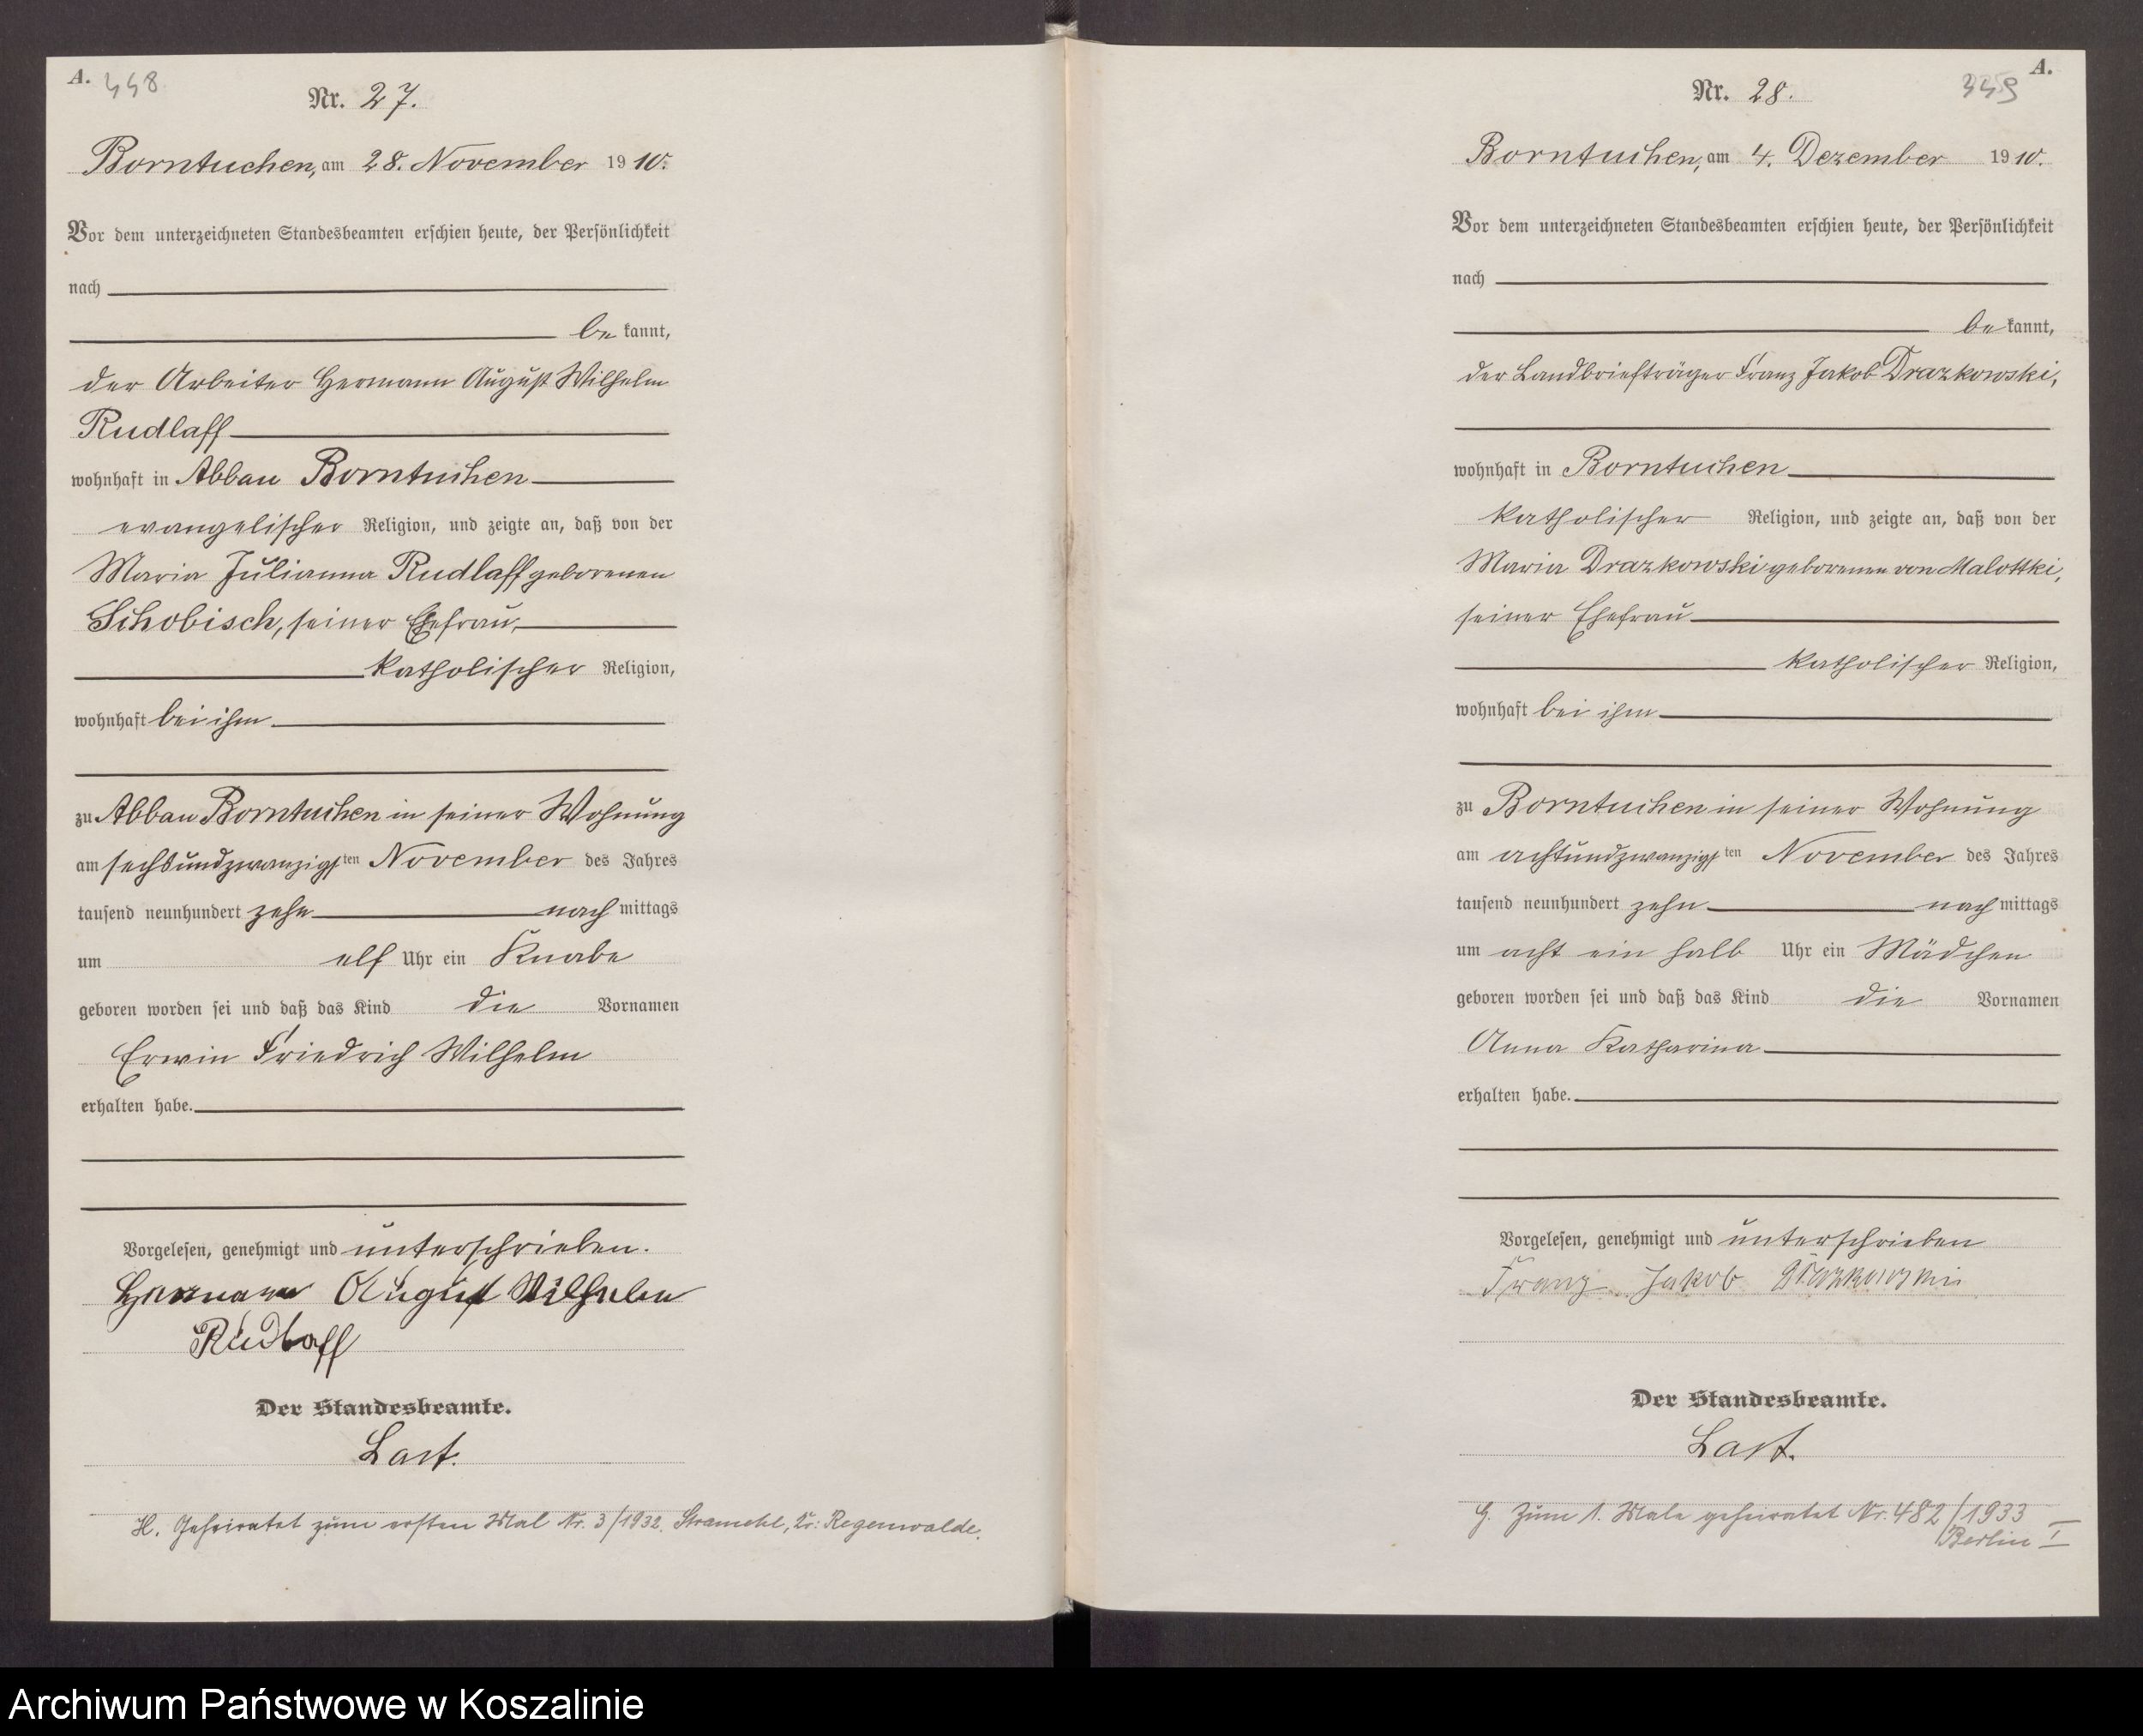 A. 448
Nr. 27.
Borntuchen, am 28. November 1910.
Vor dem unterzeichneten Standesbeamten erschien heute, der Persönlichkeit
nach
be kannt,
der Arbeiter Hermann August Wilhelm
Rudlaff
wohnhaft in Abbau Borntuchen
evangelischer Religion, und zeigte an, daß von der
Maria Julianna Rudlaff geborenen
Schobisch, seiner Ehefrau,
katholischer Religion,
wohnhaft bei ihm
zu Abbau Borntuchen in seiner Wohnung
am sechsundzwanzigsten November des Jahres
tausend neunhundert zehn nach mittags
um elf Uhr ein Knabe
geboren worden sei und daß das Kind die Vornamen
Erwin Friedrich Wilhelm
erhalten habe.
Vorgelesen, genehmigt und unterschrieben.
Hermann August Wilhelm
Rudlaff
Der Standesbeamte.
Last.
H. Geheiratet zum ersten Mal Nr. 3/1932. Stramehl, Kr: Regenwalde.
A.
Nr. 28.
Borntuchen, am 4. Dezember 1910.
Vor dem unterzeichneten Standesbeamten erschien heute, der Persönlichkeit
nach
be kannt,
der Landbriefträger Franz Jakob Drazkowski,
wohnhaft in Borntuchen
katholischer Religion, und zeigte an, daß von der
Maria Drazkowski geborenen von Malottki,
seiner Ehefrau
katholischer Religion,
wohnhaft bei ihm
zu Borntuchen in seiner Wohnung
am achtundzwanzigsten November des Jahres
tausend neunhundert zehn nach mittags
um acht ein halb Uhr ein Mädchen
geboren worden sei und daß das Kind die Vornamen
Anna Katharina
erhalten habe.
Vorgelesen, genehmigt und unterschrieben
Franz Jakob
Der Standesbeamte.
Last.
G. Zum 1. Male geheiratet Nr. 482/1933
Berlin I
Archiwum Państwowe w Koszalinie